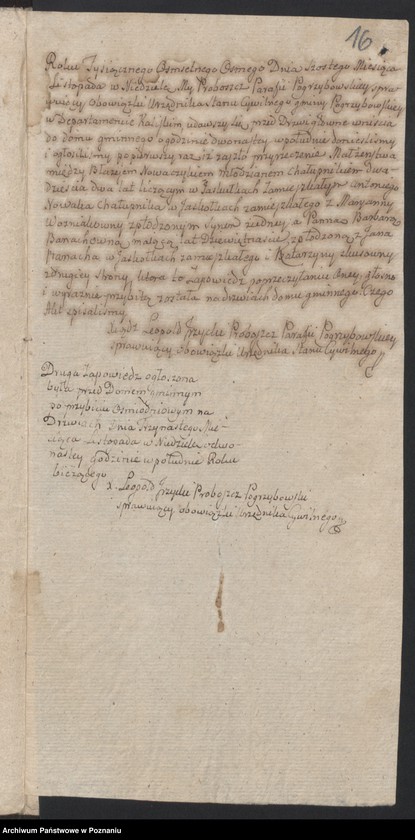 16
Roku Tysiącznego Osmsetnego Osmego Dnia Szostego Miesiąca
Listopada w Niedzielę My Proboszcz Parafii Pogrzybowskiey spra-
wuiący Obowiązki Urzędnika Stanu Cywilnego gminy Pogrzybowskiey
w Departamencie Kaliskim udawszy się przed Drzwi główne weiścia
do domu gminnego o godzinie dwunastey w południe donieśliśmy
i ogłosiliśmy po pierwszy raz iż zaszło przyrzeczenie Małżeństwa
między Błażejem Nowaczykiem Młodzianem Chałupnikiem Dwa-
dziescia dwa lat liczącym w Jaskułkach zamieszkałym Antoniego
Nowaka Chałupnika w Jaskułkach zamieszkałego z Maryanny
Wozniakowny spłodzonym synem z iedney, a Panną Barbarą
Banachowną maiącą lat Dziewiętnascie, spłodzoną z Jana
Banacha w Jaskułkach zamieszkałego i Katarzyny
z drugiey strony, ktora to Zapowiedz po przeczytaniu głosno
i wyraznie przybitą została na drzwiach domu gminnego. Czego
Akt spisaliśmy.
Leopold Proboszcz Parafii Pogrzybowskiey
sprawuiący obowiązki Urzędnika Stanu Cywilnego
Druga Zapowiedz ogłoszona
była przed Domem gminnym
po przybiciu Osmiodniowym na
Drzwiach Dnia Trzynastego Mie-
siąca Listopada w Niedzielę o dwu-
nastey godzinie w południe Roku
bieżącego
X. Leopold Proboszcz Pogrzybowski
sprawuiący obowiązki Urzędnika Cywilnego
Archiwum Państwowe w Poznaniu